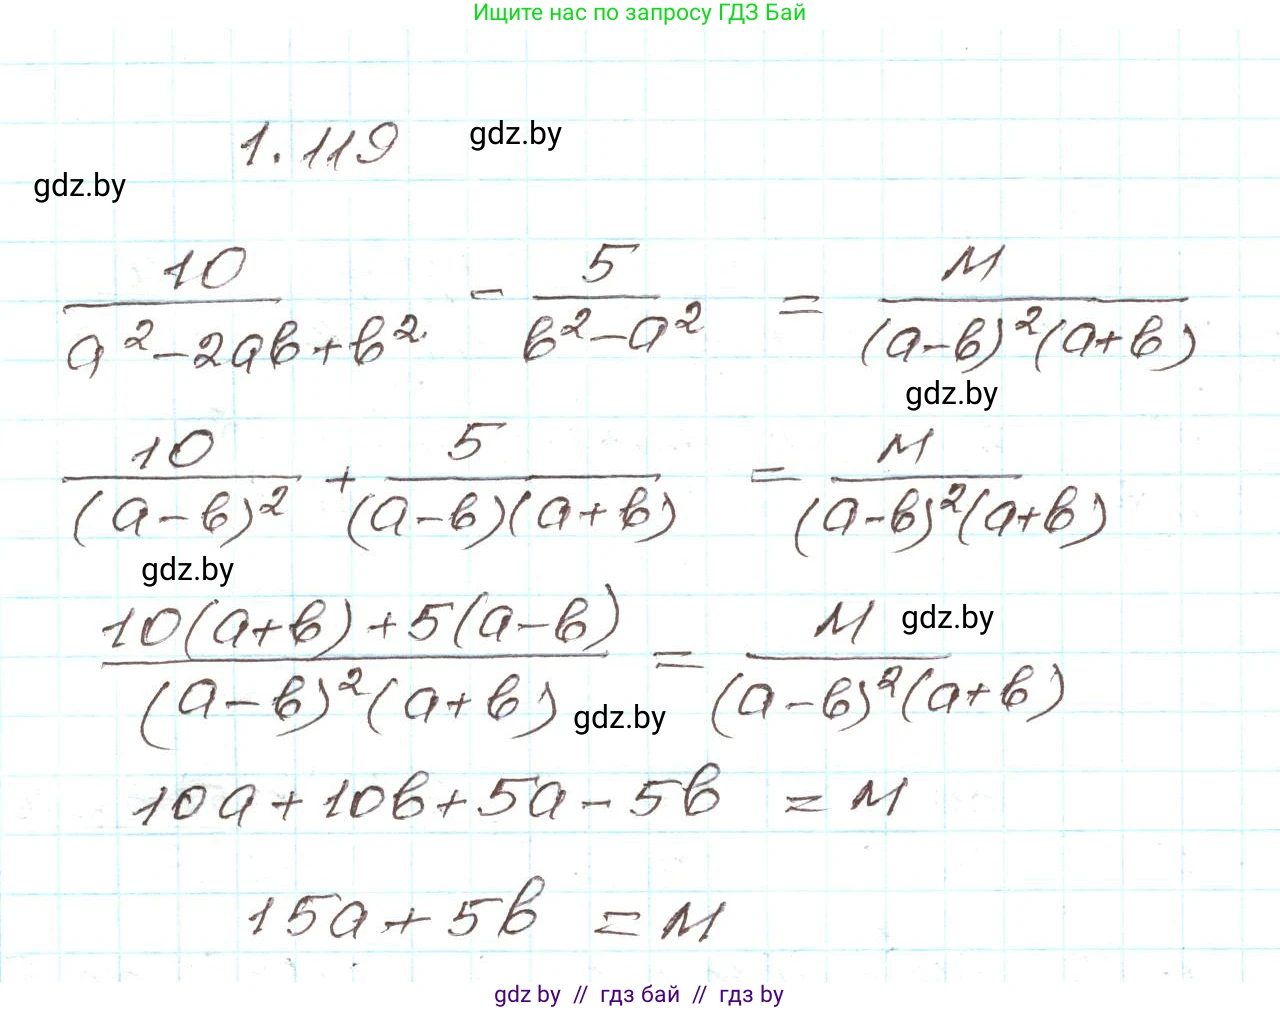 Ищите нас по запросу ГДЗ Бай
1.119
gdz.by
gdz.by
10/(a²-2aв+в²) - 5/(в²-a²) = M/((a-в)²(a+в))
gdz.by
10/(a-в)² + 5/((a-в)(a+в)) = M/((a-в)²(a+в))
gdz.by
gdz.by
(10(a+в)+5(a-в))/((a-в)²(a+в)) = M/((a-в)²(a+в))
gdz.by
10a+10в+5a-5в = M
15a+5в = M
gdz by // гдз бай // гдз by